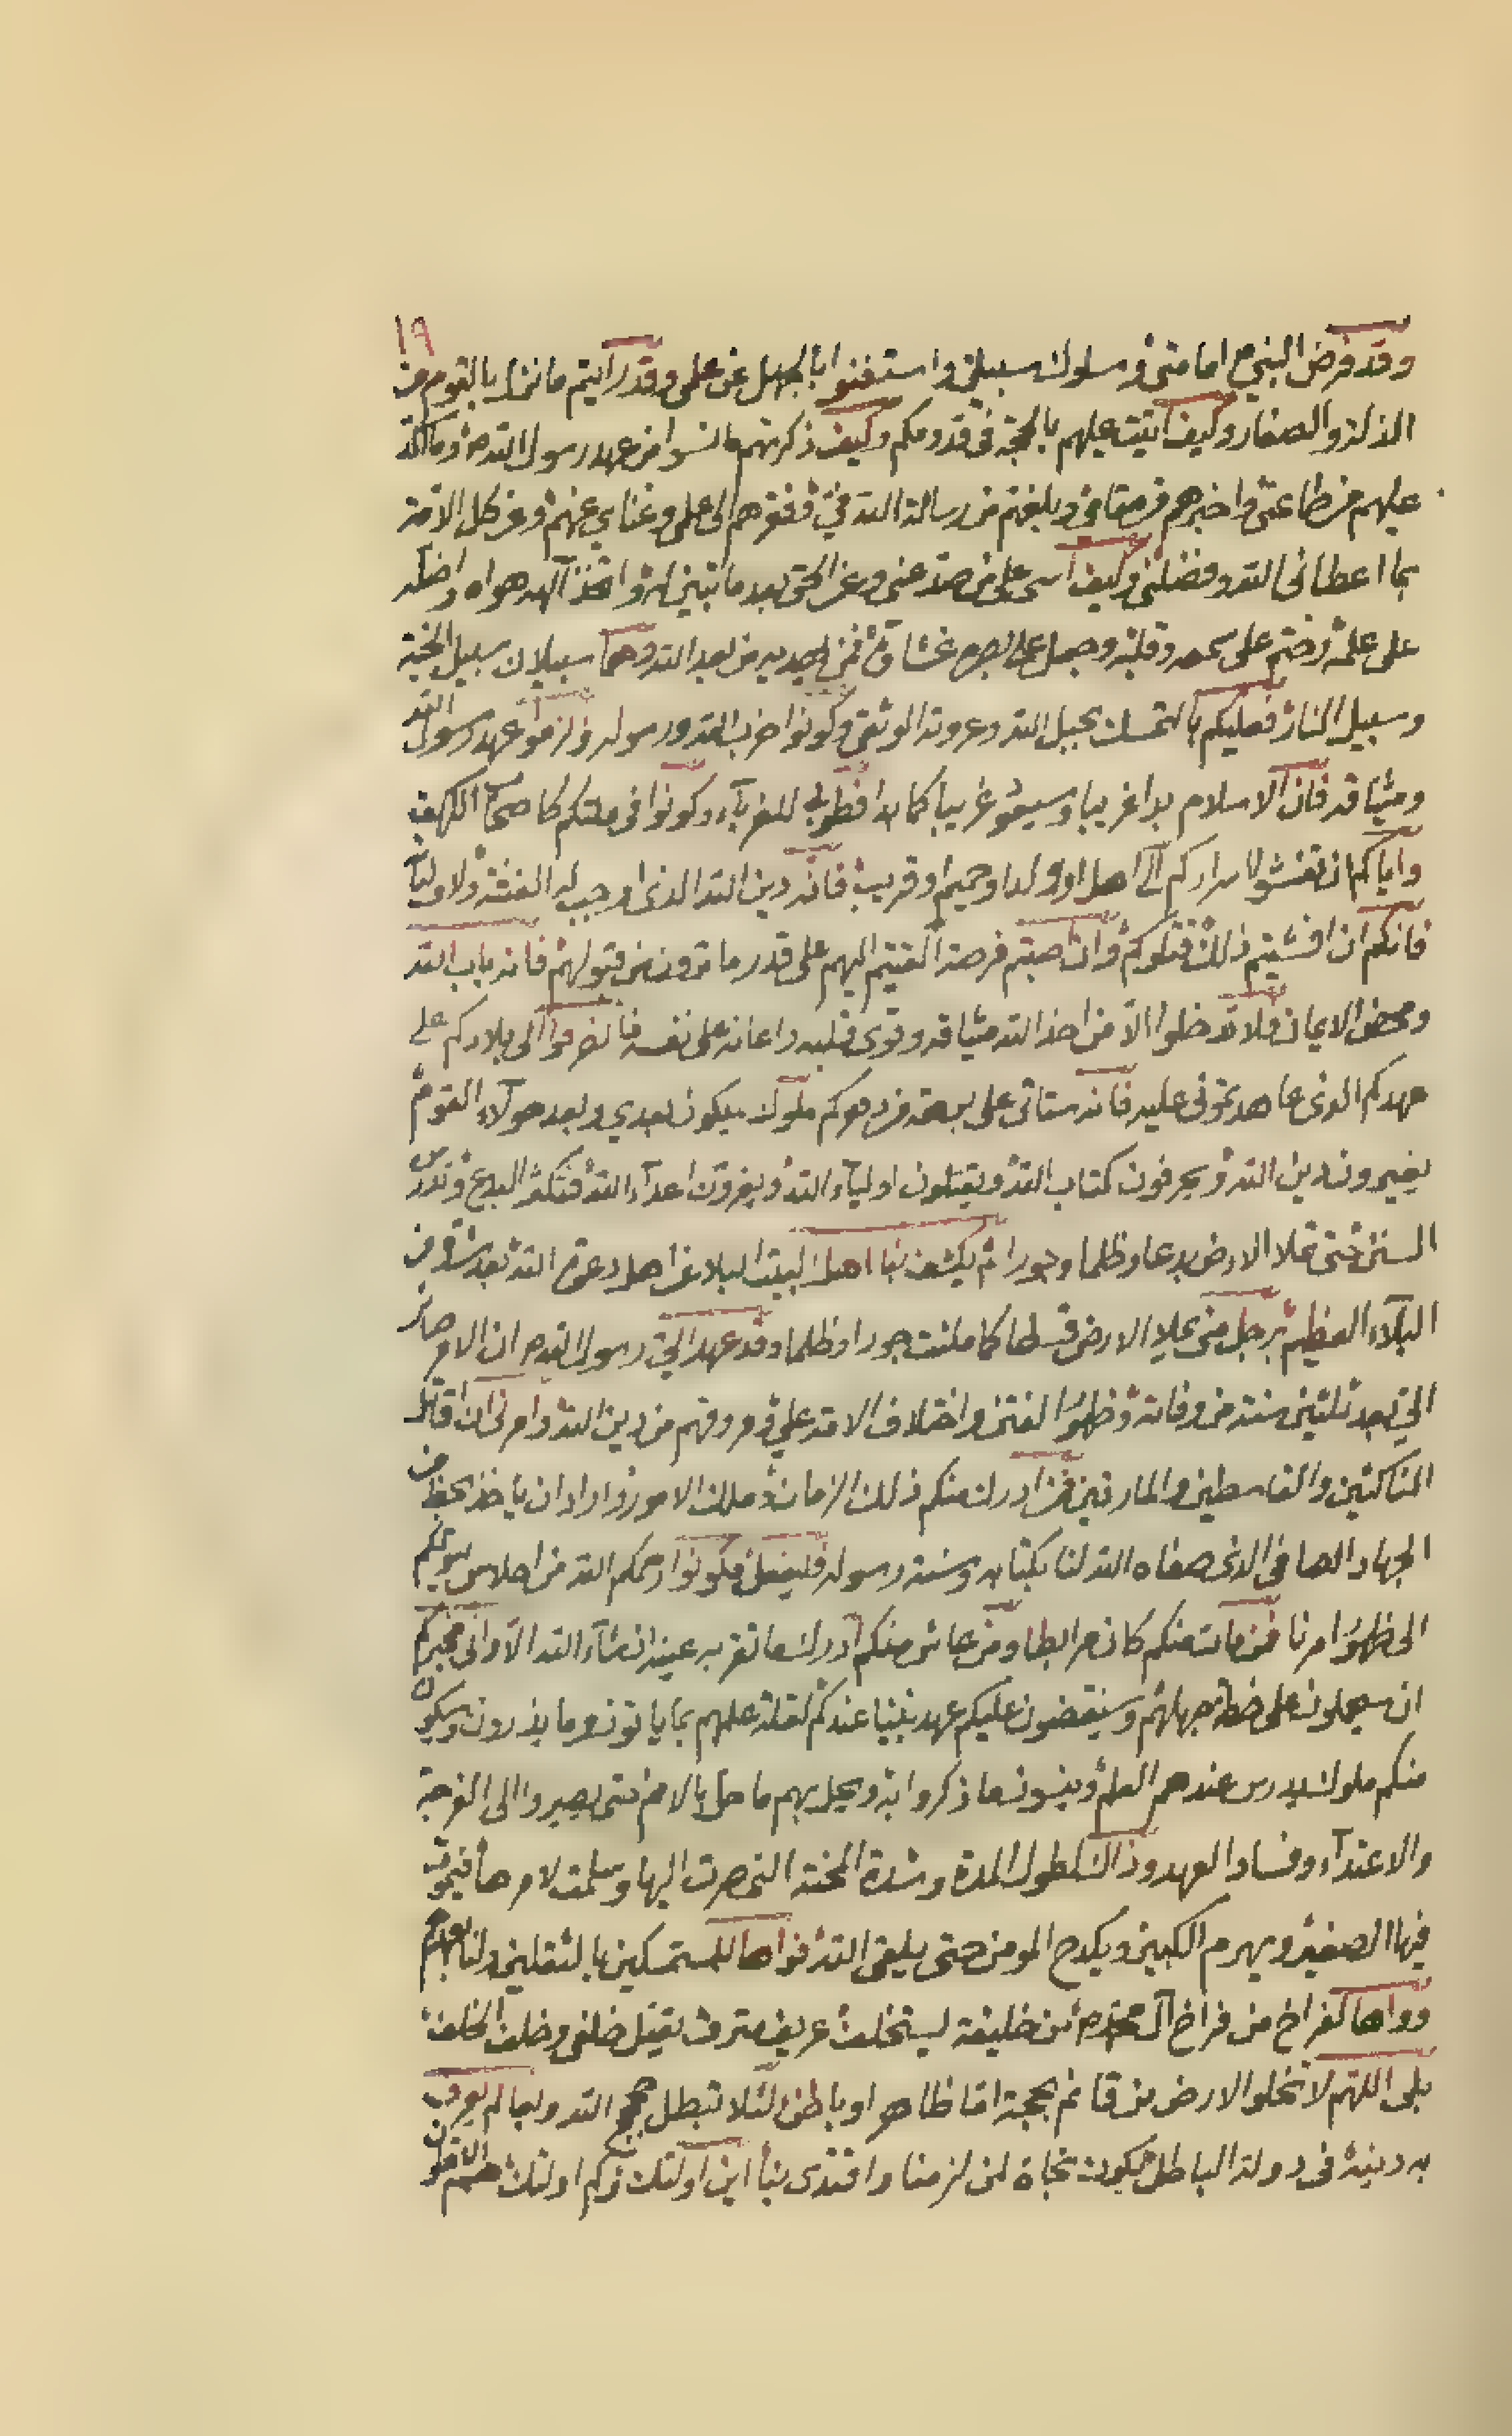 ١٩
وقد فرض النبي ص امامتي وسلوك سبيلي واستغنوا بالجهل عن علمي وقد رايتم ما نزل بالقوم من
الذلة والصغار وكيف اثبتت عليهم بالحجة في قدومكم وكيف ذكرتهم ما نسوا من عهد رسول الله ص وما اكد
عليهم من طاعتي واخبرهم من مقامي وبلغهم من رسالة الله في وفقرهم الى علمي وغناي عنهم وعن كل الامة
بما اعطاني الله وفضلني وكيف اسى على من صد عني وعن الحق بعد ما تبين له واتخذ الهه هواه واضله
على علم وختم على سمعه وقلبه وجعل على بصره غشاوة فمن يهديه من بعد الله وهما سبيلان سبيل الجنة
وسبيل النار فعليكم بالتمسك بحبل الله وعروته الوثقى وكونوا حزب الله ورسوله والزموا عهد رسول الله
وميثاقه فان الاسلام بدا غريبا وسيعود غريبا كما بدا فطوبى للغرباء وكونوا في ملتكم كاصحاب الكهف
واياكم ان تفشوا اسراركم الى اهل او ولد او حميم او قريب فانه دين الله الذي اوجب له التقية ولاوليائه
فانكم ان افشيتم ذلك قتلوكم وان اصبتم فرصة القيتم اليهم على قدر ما ترون من قبولهم فانه باب الله
ومحض الايمان فلا تدخلوا الا من اخذ الله ميثاقه وقوى قلبه واعانه على نفسه فانصرفوا الى بلادكم على
عهدكم الذي عاهدتموني عليه فانه ستاتي على برهة من دهركم ملوك يكون بعدي وبعد هؤلاء القوم
يغيرون دين الله ويحرفون كتاب الله ويقتلون اولياء الله ويعزون اعداء الله فتكثر البدع وتندرس
السنن حتى تملا الارض بدعا وظلما وجورا ثم يكشف بنا اهل البيت البلاء عن اهل دعوة الله بعد شدة من
البلاء العظيم برجل مني يملا الارض قسطا كما ملئت جورا وظلما وقد عهد الي رسول الله ص ان الامر صائر
الي بعد ثلثين سنة من وفاته وظهور الفتن واختلاف الامة علي ومروقهم من دين الله وامرني ان اقاتل
الناكثين والقاسطين والمارقين فمن ادرك منكم ذلك الزمان وملك الامور واراد ان ياخذ بحظ من
الجهاد الصافي الذي صفاه الله لنا بكتابه وسنة رسوله فليفعل فكونوا رحمكم الله من احلاس بيوتكم
الى ظهور امرنا فمن مات منكم كان مرابطا ومن عاش منكم ادرك ما تقر به عينه ان شاء الله الا واني مخبركم
ان سيحملون على خطة جهلهم وسينقضون عليكم عهد نبينا عندكم لقلة علمهم بما ياتون وما يذرون وسيكون
منكم ملوك يدرس عندهم العلم وينسون ما ذكروا به ويحل بهم ما حل بالامم حتى يصيروا الى الفرقة
والاعتداء وفساد العهد وذلك لطول المدة وشدة المحنة التي صرت اليها وسلمت لامرها فيموت
فيها الصغير ويهرم الكبير ويكدح المومن حتى يلقى الله فواها للمستمسكين بالثقلين ولنا بعهدكم
وواها لفراخ من فراخ آل محمد ص من خليفة ليستخلف عريف مترف يقتل خلفي وخلف الخلف
بلى اللهم لا تخلو الارض من قائم بحجة اما ظاهر او باطن لئلا تبطل حجج الله ولما لم يعرف
به دينه في دولة الباطل فيكون نجاة لمن لزمنا واقتدى بنا اين اولئك وكم اولئك هم الاقلون